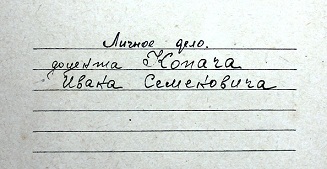 Личное дело.
доцента Копача
Ивана Семеновича